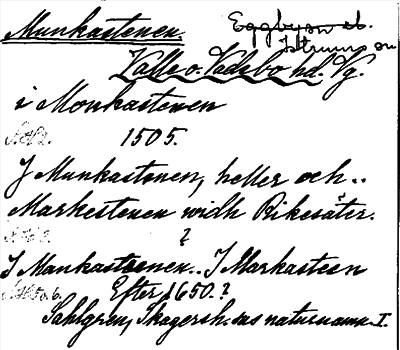 Munkastenen. Eggby sn
Istrums sn
Valle o. Vadsbo hd. Vg.
i Monkastenen
1505.
J Munkastenen, heller och..
Markestenen widh Rikesäter.
?
J Munkasteenen.. J Markasteen
Efter 1650.?
Sahlgren, Skagersh.ns naturnamn I.